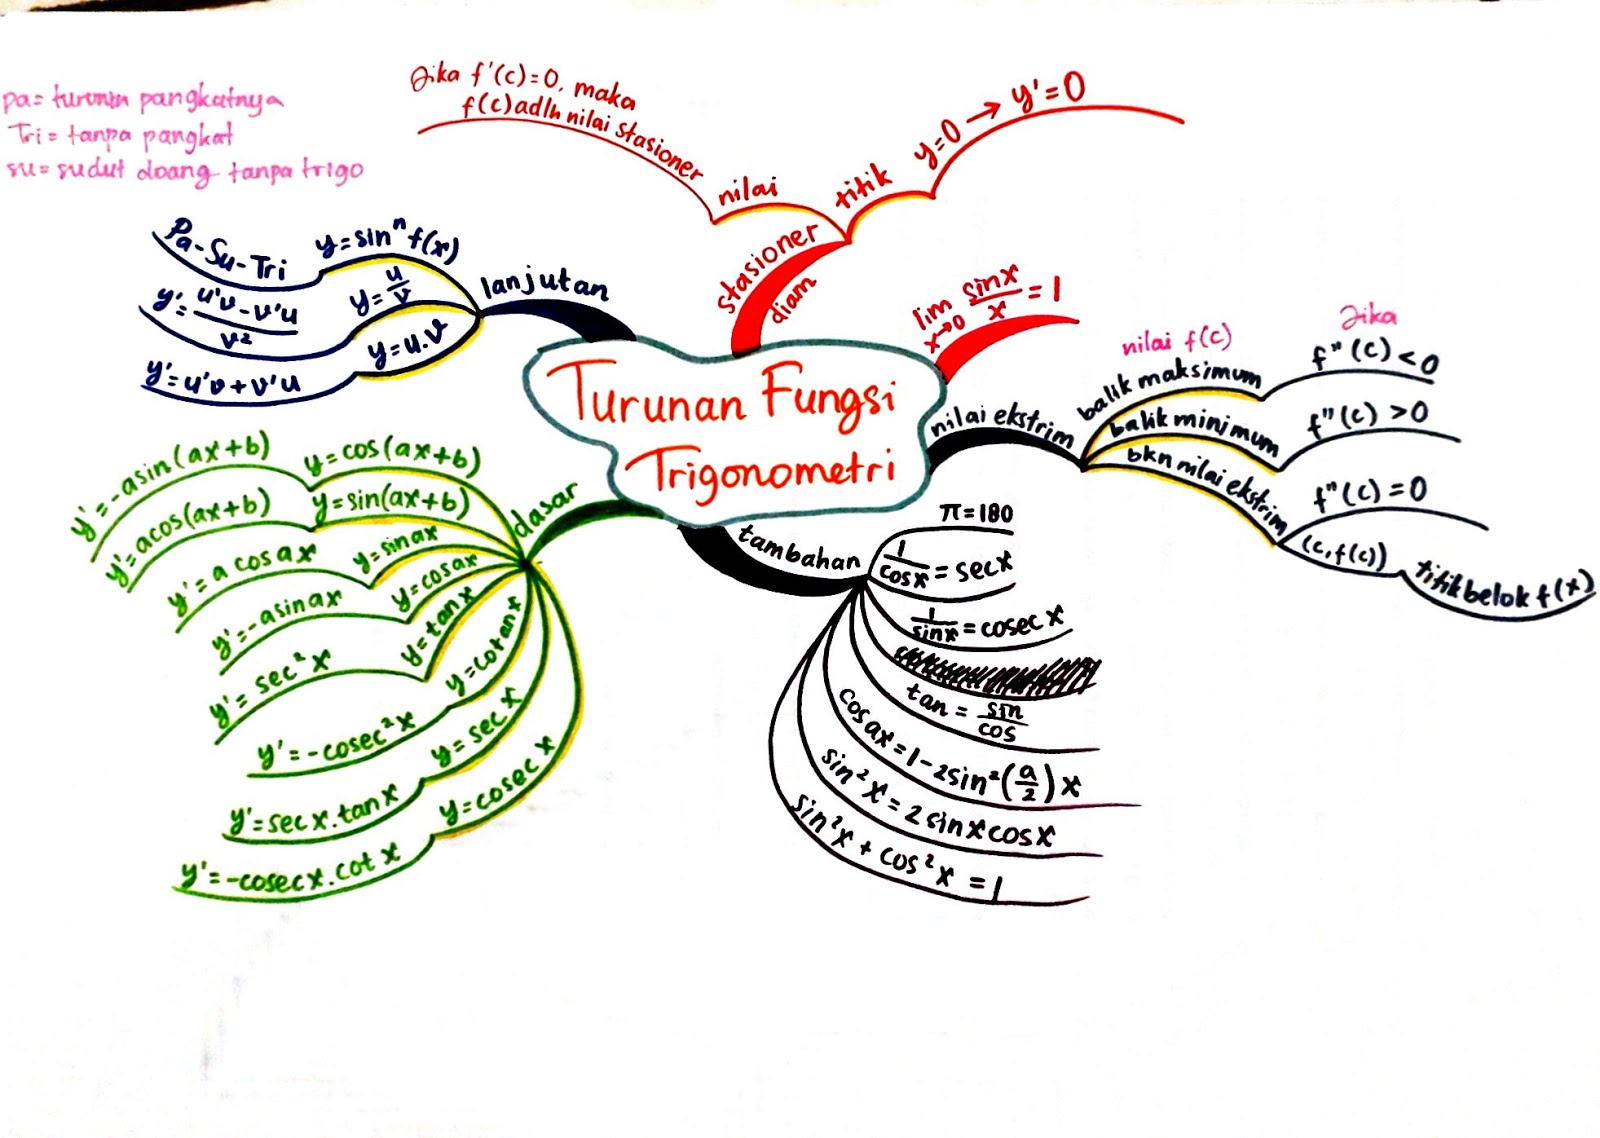 pa= turunin pangkatnya
Tri = tanpa pangkat
su= sudut doang tanpa trigo
Jika f'(c)=0, maka
f(c) adlh nilai stasioner
nilai
titik
y=0 → y'=0
stasioner
diam
lim x→0 sinx/x = 1
lanjutan
y=sinⁿ f(x)
Pa-Su-Tri
y=u/v
y'=u'v-v'u/v²
y=u.v
y'=u'v+v'u
Turunan Fungsi
Trigonometri
nilai ekstrim
nilai f(c)
Jika
balik maksimum
f"(c)<0
balik minimum
f"(c)>0
bkn nilai ekstrim
f"(c)=0
(c,f(c))
titik belok f(x)
dasar
y=cos(ax+b)
y'=-asin(ax+b)
y=sin(ax+b)
y'=acos(ax+b)
y=sinax
y'=a cosax
y=cosax
y'=-asinax
y=tanx
y'=sec²x
y=cotanx
y'=-cosec²x
y=secx
y'=secx.tanx
y=cosecx
y'=-cosecx.cotx
tambahan
π=180
1/cosx = secx
1/sinx = cosecx
tan = sin/cos
cosax=1-2sin²(a/2)x
sin²x=2sinxcosx
sin²x+cos²x=1